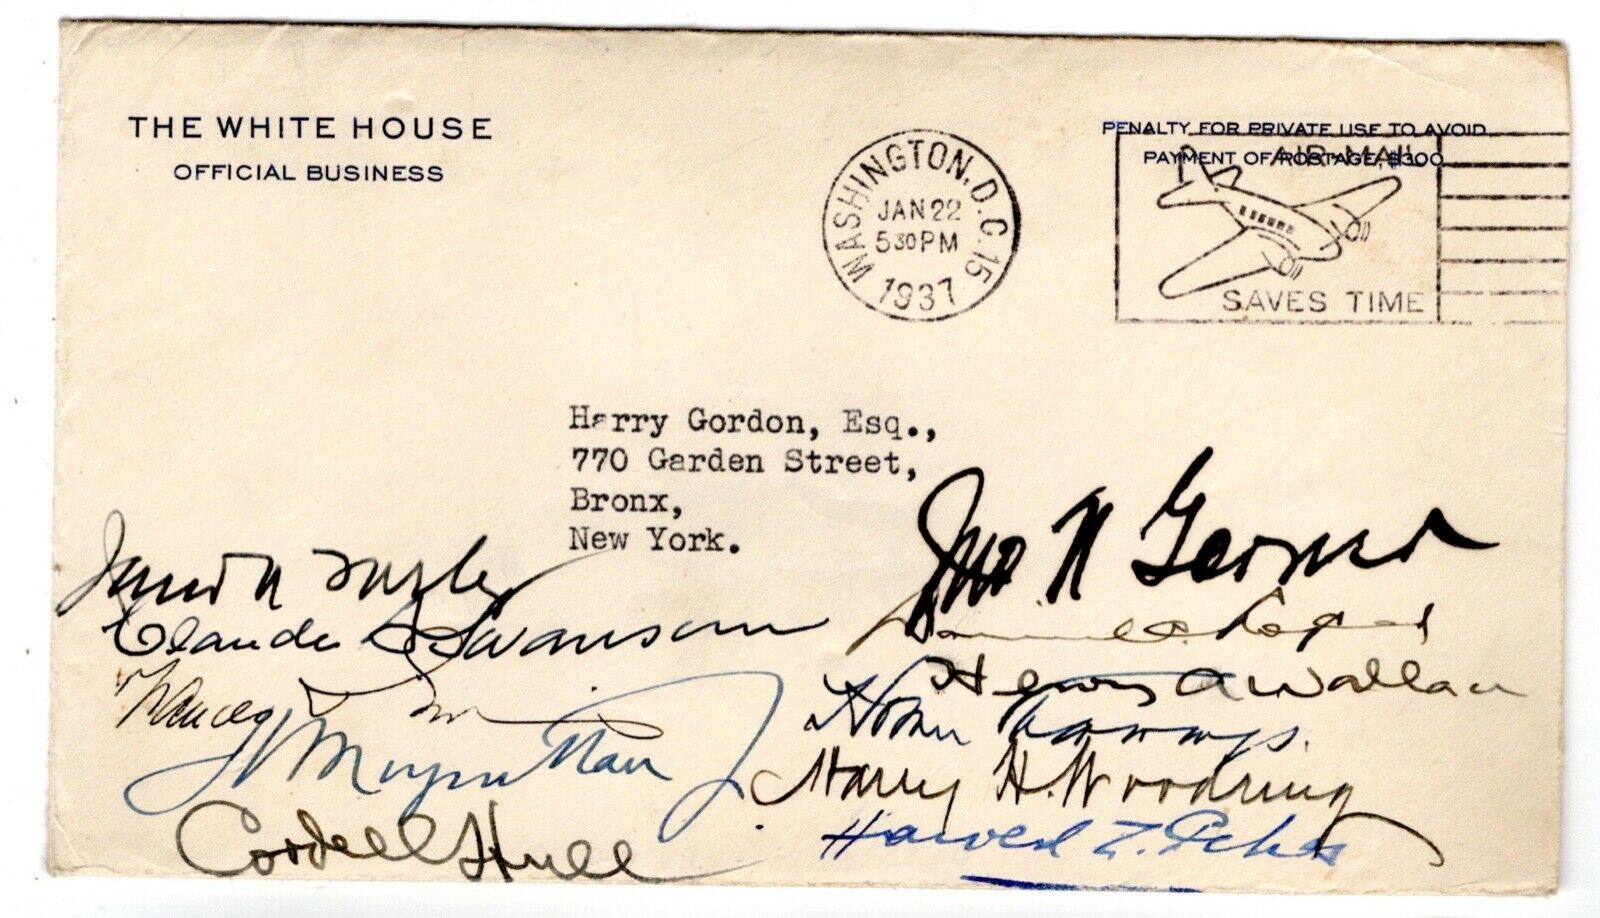 THE WHITE HOUSE
OFFICIAL BUSINESS
WASHINGTON, D.C. 15
JAN 22
5 30 PM
1937
PENALTY FOR PRIVATE USE TO AVOID
PAYMENT OF POSTAGE, $300
AIR MAIL
SAVES TIME
Harry Gordon, Esq.,
770 Garden Street,
Bronx,
New York.
Jno N Garner
James A Farley
Claude A Swanson
Daniel C. Roper
Henry A Wallace
Frances Perkins
Homer Cummings
H Morgenthau Jr
Harry H. Woodring
Cordell Hull
Harold L. Ickes